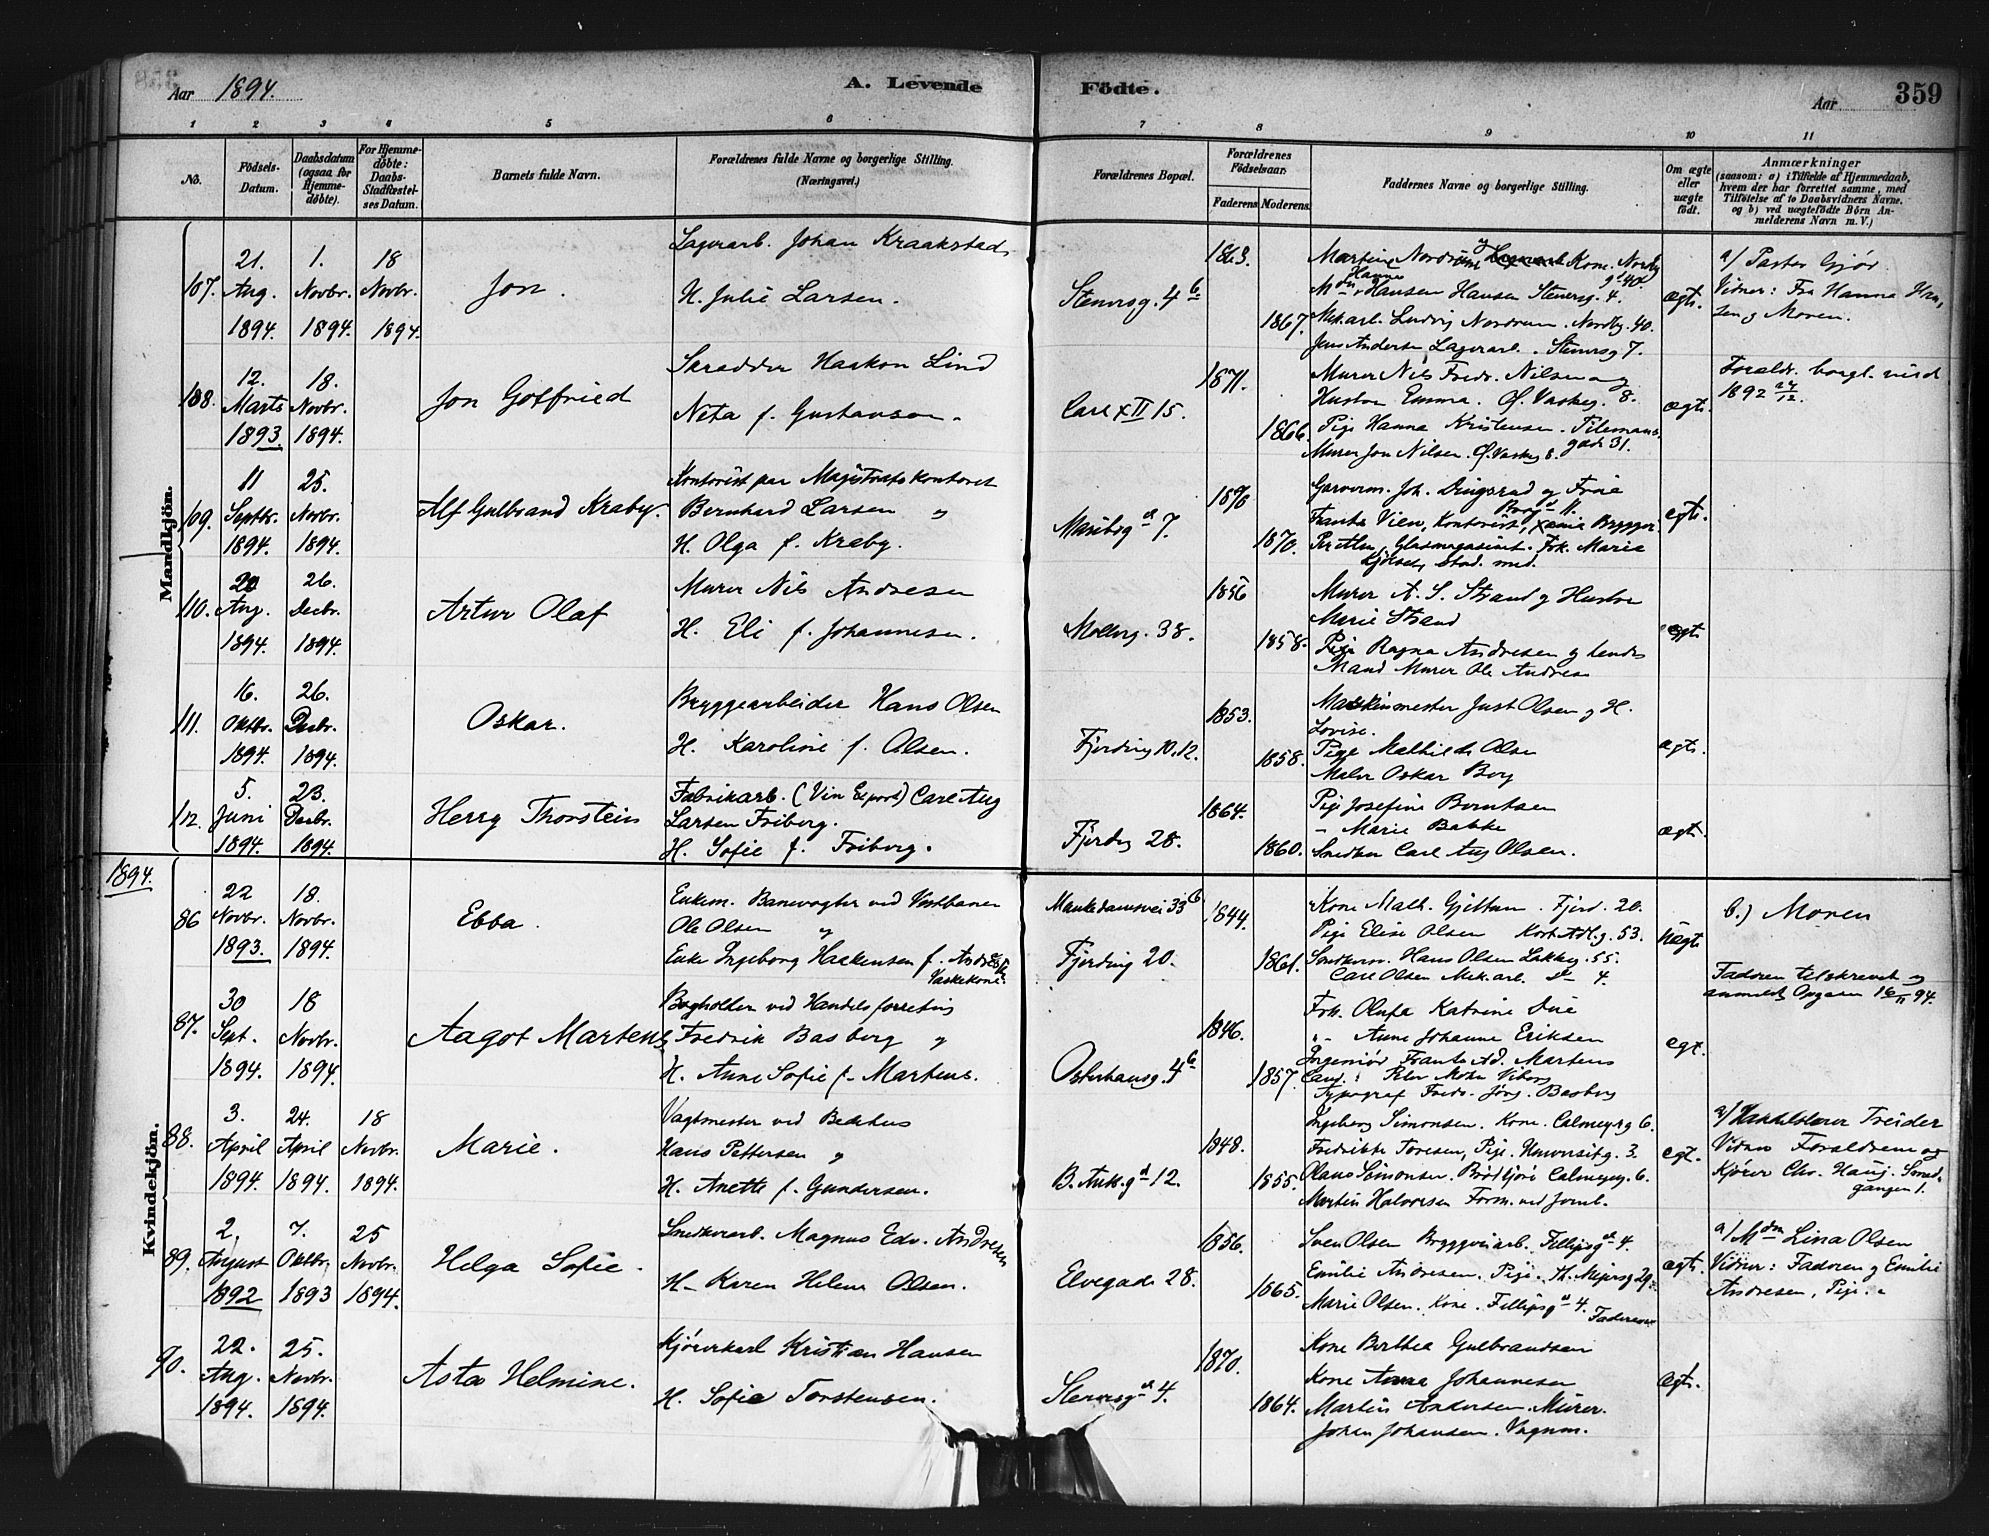 Aar 1894.
A. Levende Födte.
Aar
359
1 2 3 4 5 6 7 8 9 10 11
No.
Födsels-Datum.
Daabsdatum (ogsaa for Hjemme-döbte).
For Hjemme-döbte: Daabs-Stadfæstel-ses Datum.
Barnets fulde Navn.
Forældrenes fulde Navne og borgerlige Stilling. (Næringsvei.)
Forældrenes Bopæl.
Forældrenes Födselsaar.
Faderens. Moderens.
Faddernes Navne og borgerlige Stilling.
Om ægte eller uægte födt.
Anmærkninger
(saasom: a) i Tilfælde af Hjemmedaab,
hvem der har forrettet samme, med
Tilföielse af to Daabsvidners Navne.
og b) ved uægtefödte Börn An-
melderens Navn m. V.)
Mandkjön.
107. 21. Aug. 1894. 1. Novbr. 1894. 18 Novbr. 1894.
Jon.
Lagerarb. Johan Kraakstad
H. Julie Larsen.
Stenersg. 4 b
1863. 1867.
Hansen Hansen Stenersg. 4.
Mek. arb. Ludvig Nordrum. Nordbg. 40.
Jens Andersen Lagerarb. Stenersg 7.
ægte.
a/ Pastor Gjør.
Vidner: Fru Hanna Han-
sen og Moren.
108. 12. Marts 1893. 18. Novbr. 1894.
Jon Gotfried
Haakon Lind
Neta f. Gustavson.
Carl XII 15.
1871. 1866.
Murer Nils Fredr. Nilsen og
Hustru Emma. Ø. Vaskeg. 8.
Pige Hanna Kristensen. Tilemans-
gade 31.
Murer Jon Nilsen. Ø. Vaskeg 8.
ægte.
Foræld. borgl. viet
1892 24/12.
109. 11 Septbr. 1894. 25. Novbr. 1894.
Alf Gulbrand Kraby.
Kontorist paa Magistratskontoret
Bernhard Larsen og
H. Olga f. Kraby.
Maribog d 7.
1870. 1870.
Garverm. Joh. Dingsrud og Frue
Frants Vien, Kontorist,
Glasmagasinet. Frk. Marie
stud. med.
ægte.
110. Aug. 1894. 26. Decbr. 1894.
Artur Olaf
Murer Nils Andresen
H. Eli f. Johannesen.
Mollerg. 38.
1856 1858.
Murer A. S. Strand og Hustru
Marie Strand
Pige Ragna Andresen og hendes
Mand Murer Ole Andresen
ægte
111. 16. Oktbr. 1894. 26. Decbr. 1894.
Oskar.
Bryggearbeider Hans Olsen
H. Karoline f. Olsen.
Fjerding 10.12.
1853. 1858.
Maskinmester Just Olsen og H.
Lovise.
Pige Mathilde Olsen
Maler Oskar Borg
ægte.
112. 5. Juni 1894. 23. Decbr. 1894.
Herry Thorstein
Fabrikarb. (Vin Export) Carl Aug
Larsen Friborg.
H. Sofie f. Friborg.
Fjerdg 28.
1864. 1860.
Pige Josefine Berntsen
" Marie Bakke
Snedker Carl Aug Olsen.
ægte.
1894.
Kvindekjön.
86 22 Novbr. 1893. 18. Novbr. 1894.
Ebba.
Enkem. Banevogter ved Vestbanen
Ole Olsen og
Enke Ingeborg Haakensen f. Andresen
Vaskekone.
Munkedamsvei 33 b
Fjerding 20.
1844. 1861.
Kone Math. Gjettum. Fjerd. 20.
Pige Elise Olsen Kort Adl.g. 53.
Snedkerm. Hans Olsen Lakkeg. 55.
Carl Olsen Mek. arb. 4.
Uægte.
b.) Moren
Faderen tilskrevet og
anmeldt Opgaven 16/11 94.
87. 30 Sept. 1894. 18 Novbr. 1894.
Aagot Martens
Bogholder ved Handelsforretning
Fredrik Basberg og
H. Anne Sofie f. Martens.
Osterhausg. 4 b
1846. 1857.
Frk. Olufa Katrine Due
" Anne Johanne Eriksen
Ingeniør Frants Ad. Martens
Typograf Fredr. Jørg. Basberg
egt.
88. 3. April 1894. 24. April 1894. 18 Novbr. 1894.
Marie.
Vagtmester ved Bedehus
Hans Pettersen og
H. Anette f. Gundersen.
B. Ank. g d 12.
1848. 1855.
Ingeborg Simonsen. Kone. Calmeyersg 6.
Fredrikke Toresen, Pige. 3.
Olaus Simonsen. Calmeyerg. 6.
Martin Halvorsen Form. ved Jernb.
egt.
a/ Treider
Vidner Forældrene og
Kjører Chr. Haug. Smed-
gangen 1.
89. 2. August 1892 7. Oktbr. 1893 25 Novbr. 1894.
Helga Sofie.
Snedkerarb. Magnus Edv. Andresen
H. Karen Helene Olsen.
Elvegade 28.
1856. 1865.
Sven Olsen Bryggeriarb. Fillipsg d 4.
Emilie Andresen. Pige. Th. Meiersg 29.
Marie Olsen. Kone. Fillipsg d 4. Faderen
ægte.
a/ Mdm Lina Olsen
Vidner: Faderen og Emilie
Andresen, Pige.
90. 22. Aug. 1894. 25. Novbr. 1894.
Asta Helmine.
Kjørerkarl Kristian Hansen
H. Sofie Torstensen.
Stenersg d 4.
1870. 1864.
Kone Berthea Gulbrandsen
Kone Anna Johannesen
Martin Andersen Murer.
Johan Johansen. Vognm.
ægte.